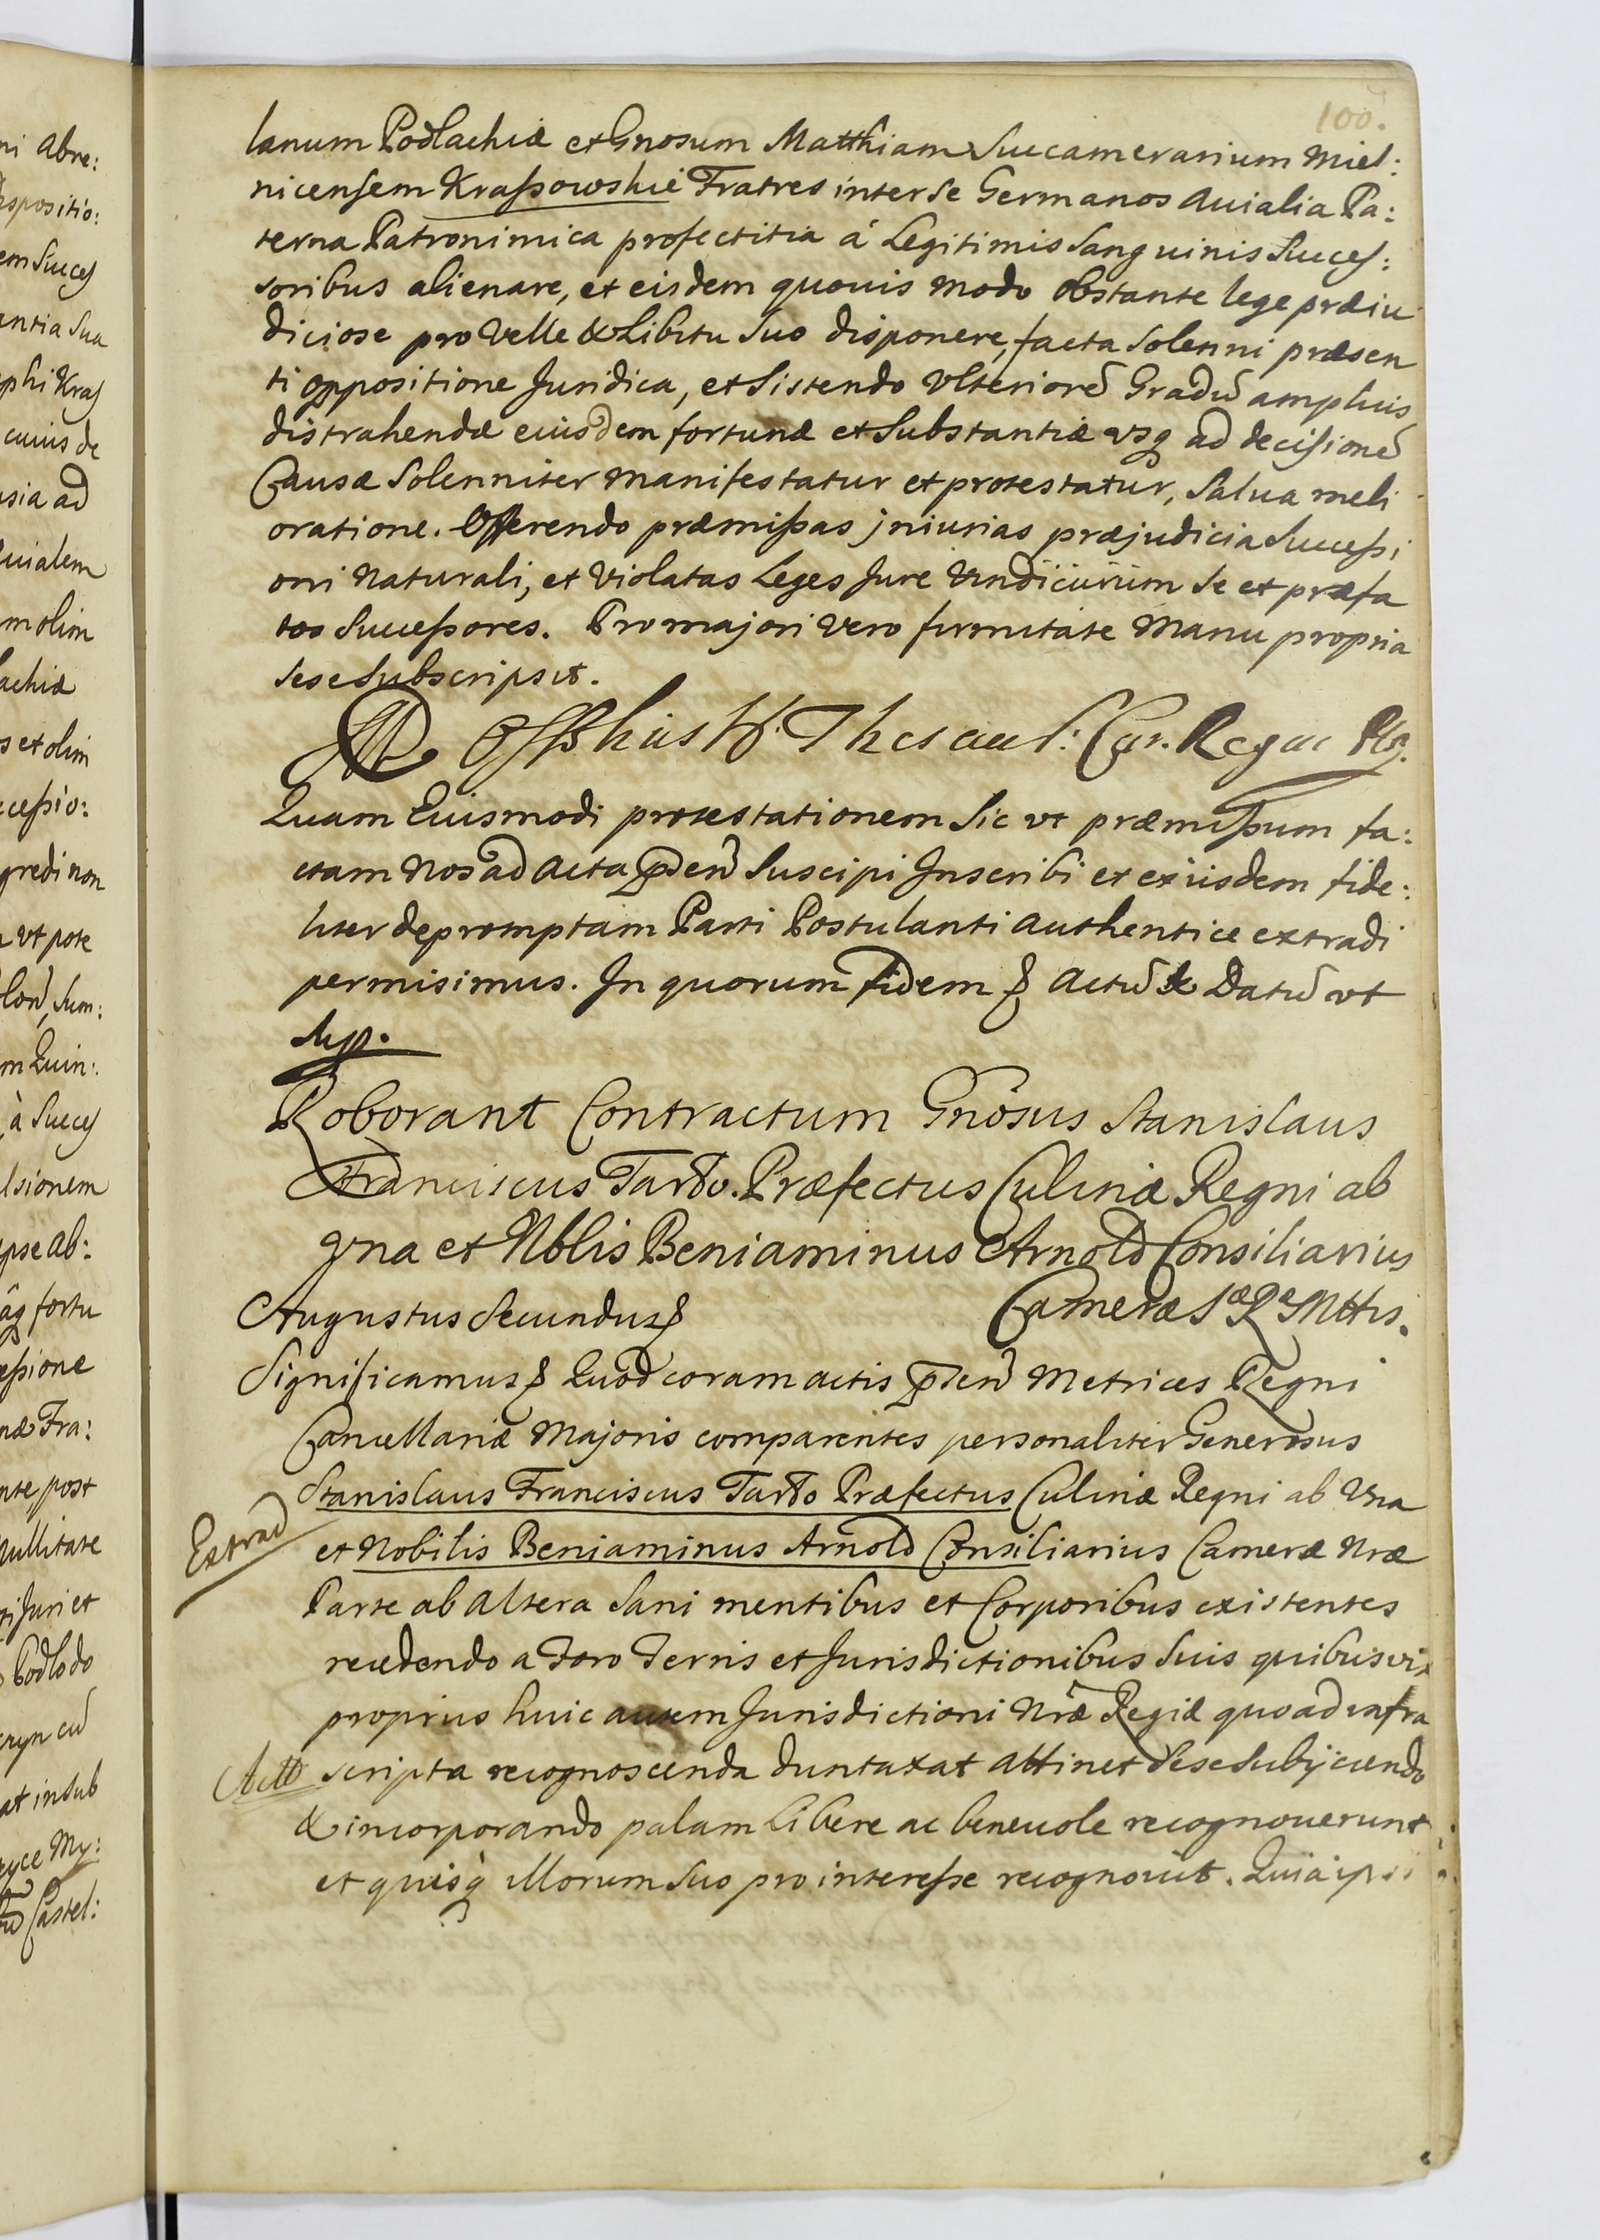 100.
lanum Podlachiæ et Gnosum Matthiam Succamerarium Miel:
nicensem Kraßowskie Fratres inter se Germanos Auialia Pa:
terna Patronimica profectitia á Legitimis Sanguinis Succes:
soribus alienare, et eisdem quouis modo obstante lege præiu
diciose pro Velle & Libitu Suo disponere, facta Solenni præsen
ti oppositione Juridica, et Sistendo Vlteriorē Gradū amplius
distrahendæ eiusdem fortunæ et Substantiæ vsq ad decisionē
Causæ Solenniter manifestatur et protestatur, Salua meli
oratione. Offerendo præmißas jniurias præjudicia Succeßi
oni Naturali, et Violatas Leges Jure Se et præfa
tos Succeßores. Pro majori vero firmitate Manu propria
sese Subscripsit.
Thesaur: Cur. Regae
Quam Eiusmodi protestationem Sic vt præmißum fa:
ctam Nos ad Acta pñ Suscipi Inscribi et ex iisdem fide:
liter depromptam Parti Postulanti authentice extradi
permisimus. In quorum fidem & Actū & Datū vt
sup.
Roborant Contractum Gnosus Stanislaus
Franciscus Tarło. Præfectus Culinæ Regni ab
vna et Nblis Beniaminus Arnold Consiliarius
Cameræ Sæ Ræ Mttis.
Augustus Secundus &
Significamus & Quod coram actis pñ Metrices Regni
Cancellariæ Majoris comparentes personaliter Generosus
Stanislaus Franciscus Tarło Præfectus Culinæ Regni ab Vna
Extrad
et Nobilis Beniaminus Arnold Consiliarius Cameræ Nræ
Parte ab Altera Sani mentibus et Corporibus existentes
recedendo a Foro Terris et Jurisdictionibus Suis quibusvis
proprius huic autem Jurisdictioni Nræ Regiæ quoad infra
scripta recognoscenda duntaxat attinet Sese Subijciendo
& incorporando palam Libere ac beneuole recognouerunt
et quisq illorum Suo pro intereße recognouit. Quia ipsi